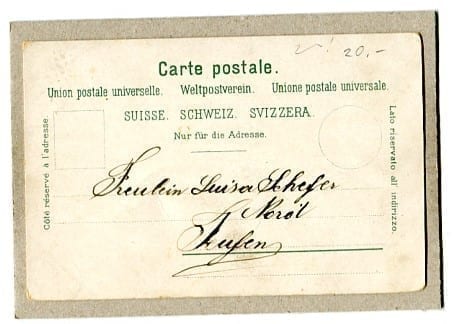 20.-
Carte postale.
Union postale universelle. Weltpostverein. Unione postale universale.
SUISSE. SCHWEIZ. SVIZZERA.
Nur für die Adresse.
Côté réservé à l'adresse.
Lato riservato all' indirizzo.
Freulein Luisa Schefer
Teufen